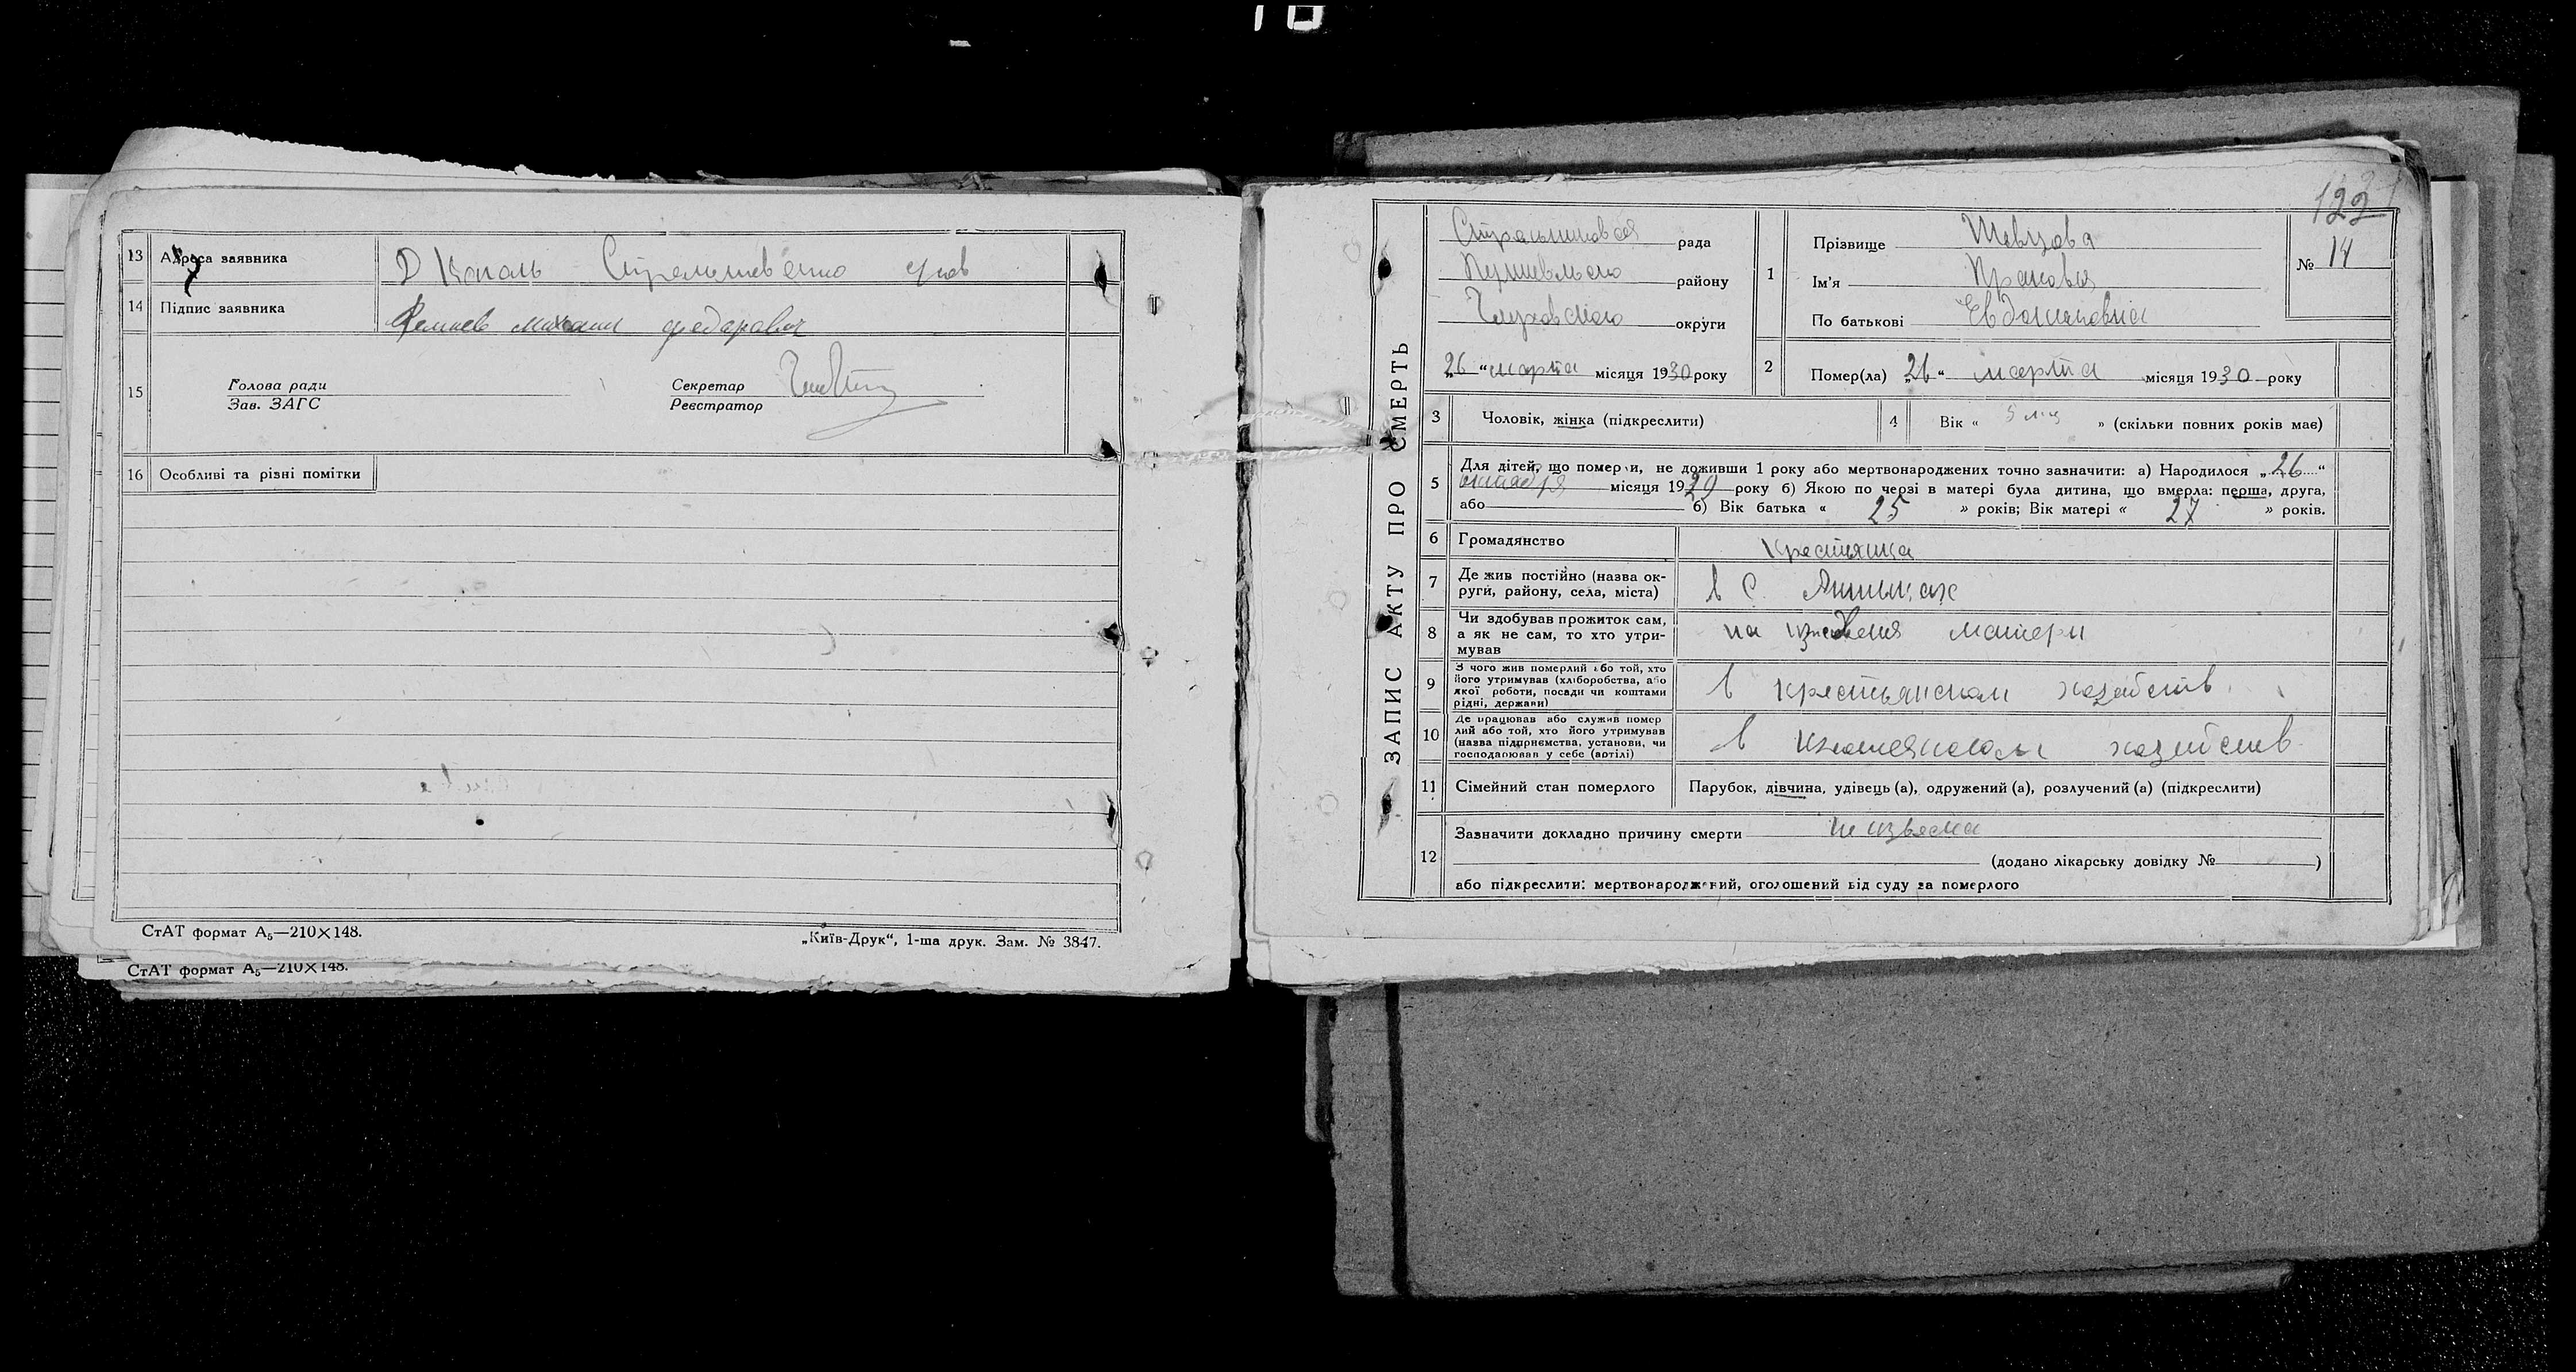 13 Адреса заявника
14 Підпис заявника
Михаил
15 Голова ради
Зав. ЗАГС
Секретар
Реєстратор
16 Особливі та різні помітки
СтАТ формат А5—210×148.
„Київ-Друк“, 1-ша друк. Зам. № 3847.
СтАТ формат А5—210×148.
122
ЗАПИС АКТУ ПРО СМЕРТЬ
рада
району
Глуховского округи
„26“ марта місяця 1930 року
1 Прізвище Шевцова
Ім'я Прасковья
По батькові
№ 14
2 Помер(ла) „26“ марта місяця 1930 року
3 Чоловік, жінка (підкреслити)
4 Вік « 5 » (скільки повних років має)
5 Для дітей, що померли, не доживши 1 року або мертвонароджених точно зазначити: а) Народилося „26“
октября місяця 1929 року б) Якою по черзі в матері була дитина, що вмерла: перша, друга,
або б) Вік батька « 25 » років; Вік матері « 27 » років.
6 Громадянство Крестьянка
7 Де жив постійно (назва ок-
руги, району, села, міста)
в с.
8 Чи здобував прожиток сам,
а як не сам, то хто утри-
мував
на матери
9 З чого жив померлий або той, хто
його утримував (хліборобства, або
якої роботи, посади чи коштами
рідні, держави)
в крестьянском хозяйств
10 Де працював або служив помер
лий або той, хто його утримував
(назва підприємства, установи, чи
господарював у себе (артілі)
в хозяйств
11 Сімейний стан померлого
Парубок, дівчина, удівець (а), одружений (а), розлучений (а) (підкреслити)
12 Зазначити докладно причину смерти
(додано лікарську довідку № )
або підкреслити: мертвонароджений, оголошений від суду за померлого